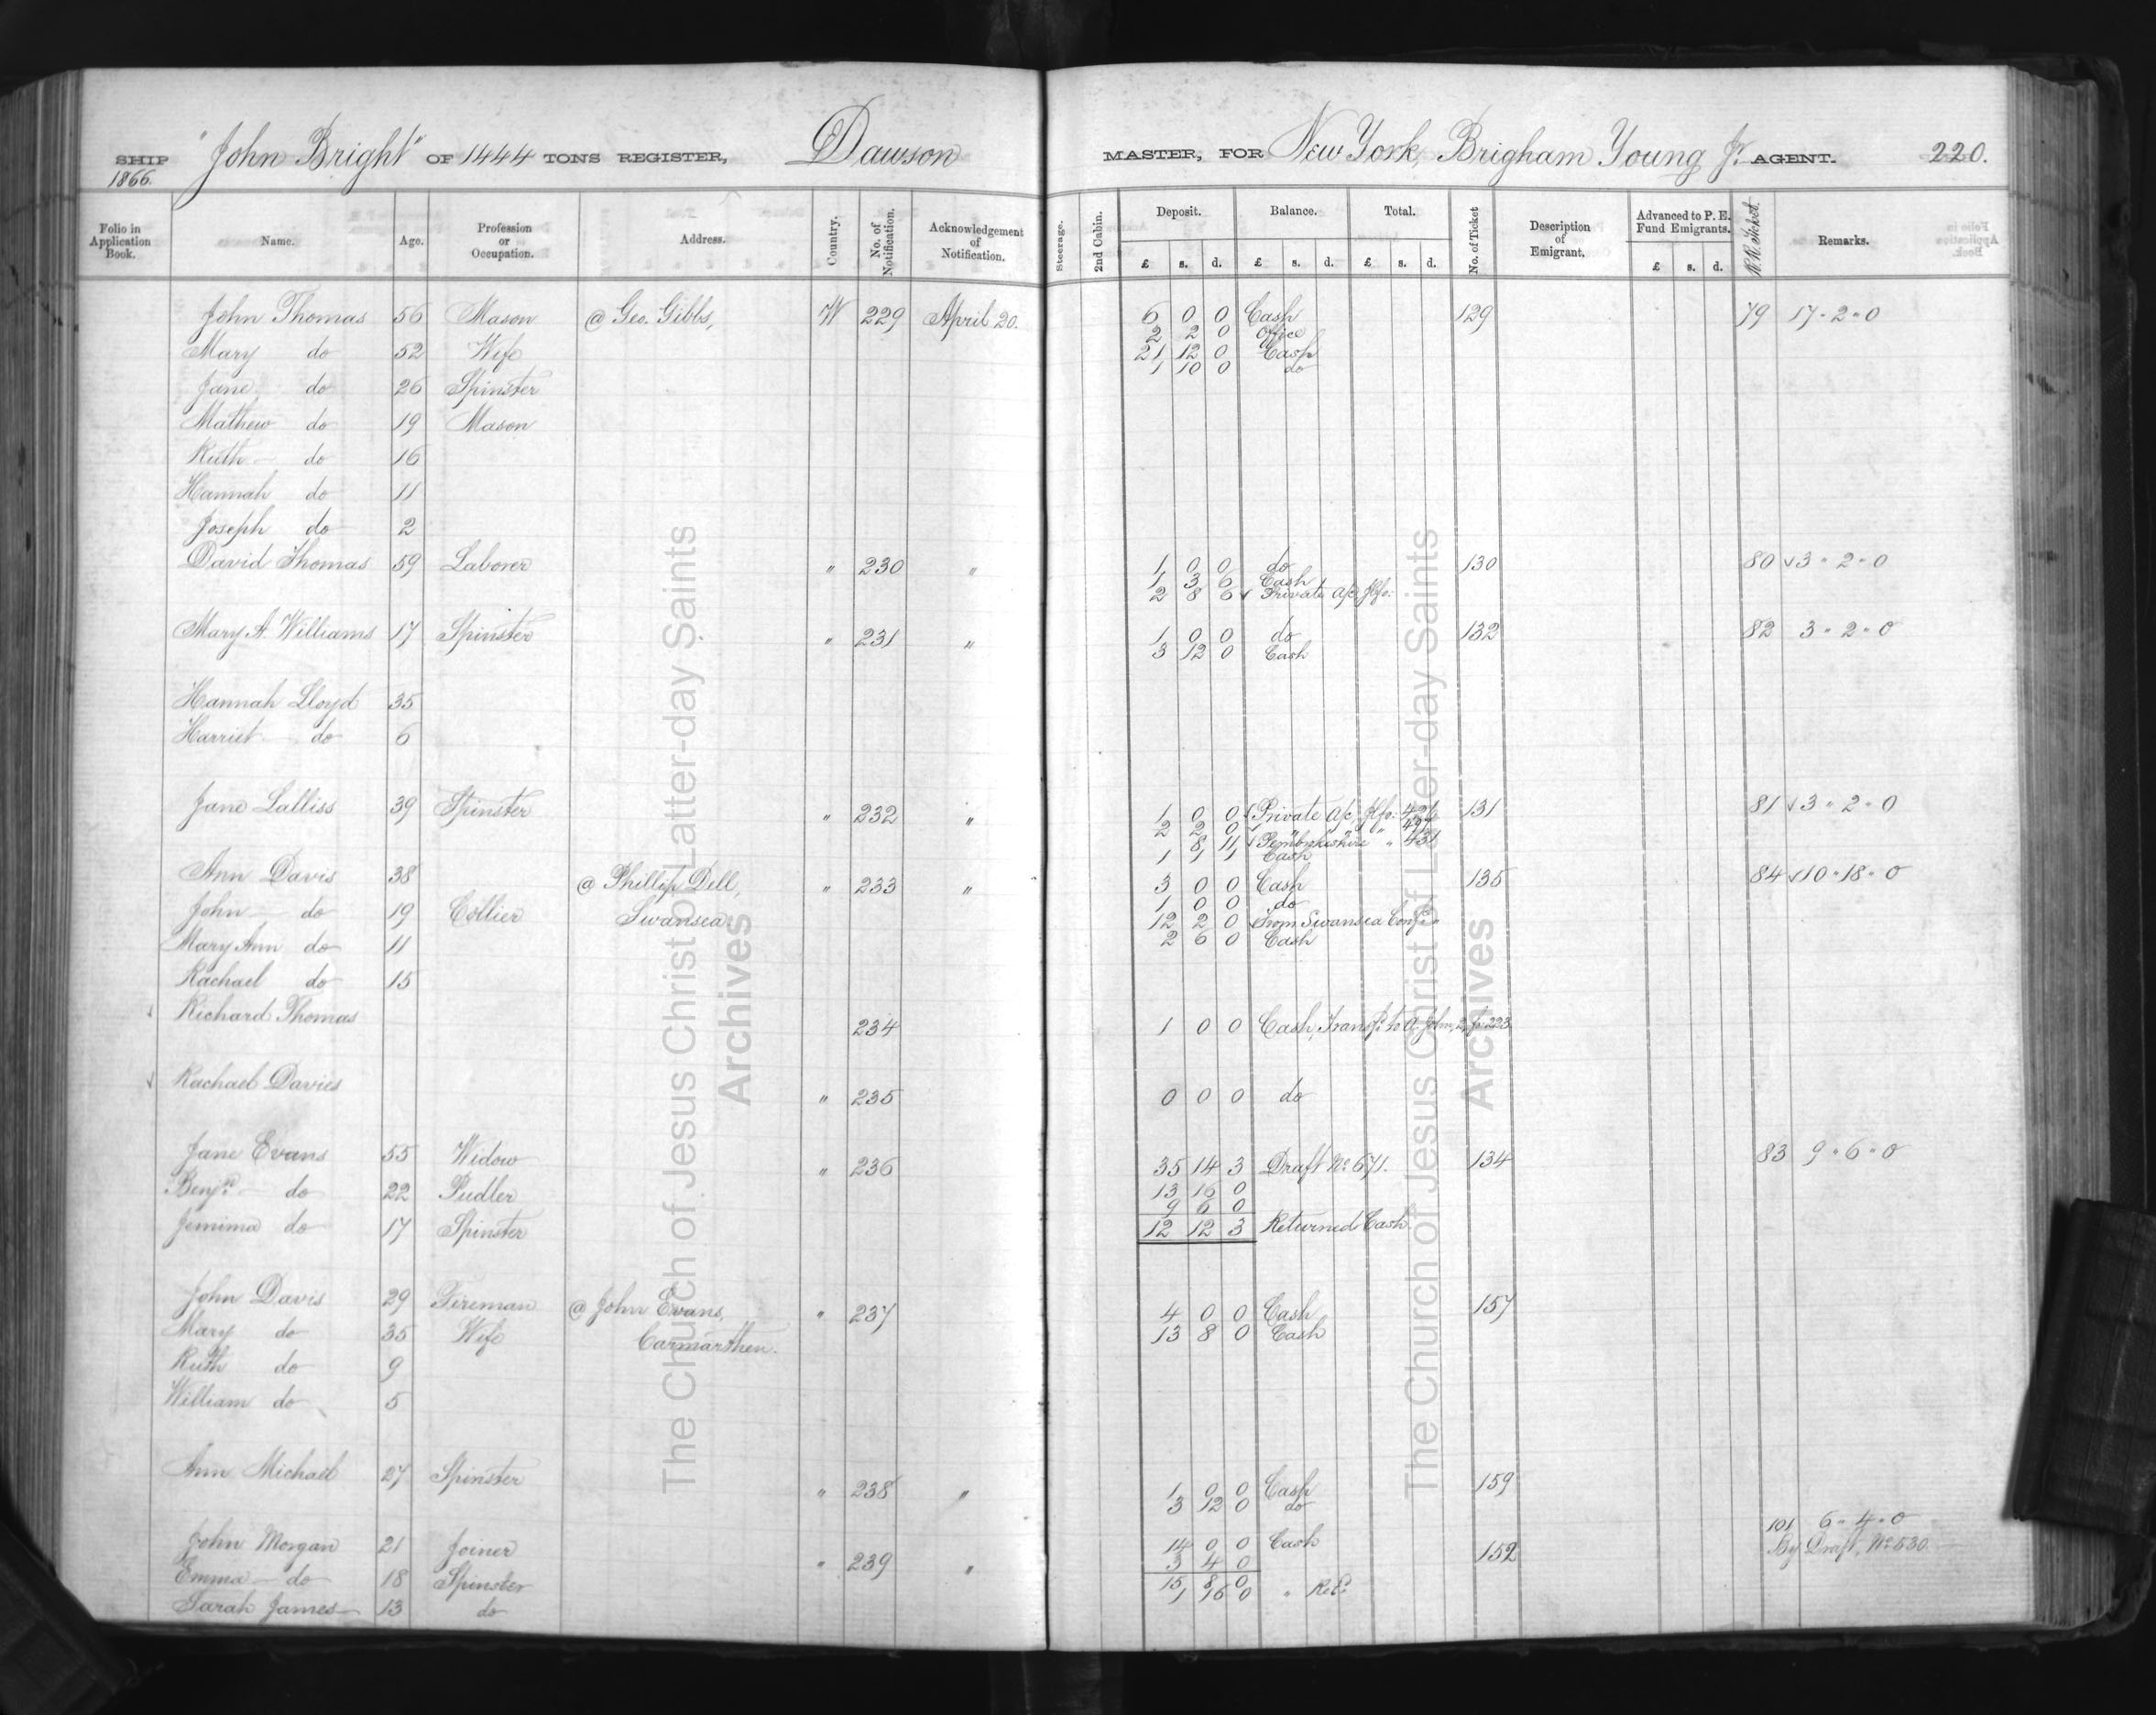 SHIP "John Bright" OF 1444 TONS REGISTER, Dawson MASTER, FOR New York, Brigham Young Jr. AGENT. 220.
1866.
Folio in Application Book. Name. Age. Profession or Occupation. Address. Country. No. of Notification. Acknowledgement of Notification. Steerage. 2nd Cabin. Deposit. Balance. Total. No. of Ticket Description of Emigrant. Advanced to P. E. Fund Emigrants. R.R. Ticket. Remarks.
£ s. d. £ s. d. £ s. d. £ s. d.
John Thomas 56 Mason @ Geo. Gibbs, W 229 April 20. 6 0 0 Cash 129 79 17 - 2 - 0
2 2 0 Office
Mary do 52 Wife 21 12 0 Cash
1 10 0 do
Jane do 26 Spinster
Mathew do 19 Mason
Ruth do 16
Hannah do 11
Joseph do 2
David Thomas 59 Laborer " 230 " 1 0 0 do 130 80 √3 - 2 - 0
1 3 6 Cash
2 8 6 √ Private a/c
Mary A. Williams 17 Spinster " 231 " 1 0 0 do 132 82 3 - 2 - 0
3 12 0 Cash
Hannah Lloyd 35
Harriet do 6
Jane Lalliss 39 Spinster " 232 " 1 0 0 √ Private a/c 131 81 √3 - 2 - 0
2 2 0 √ " "
8 11 √ Pembrokeshire " 431
1 1 1 Cash
Ann Davis 38 @ Phillip Dell, " 233 " 3 0 0 Cash 135 84 √10 - 18 - 0
1 0 0 do
John do 19 Collier Swansea 12 2 0 From Swansea Conf.
Mary Ann do 11 2 6 0 Cash
Rachael do 15
√ Richard Thomas 234 1 0 0 Cash, Transf. to 223
√ Rachael Davies " 235 0 0 0 do
Jane Evans 55 Widow " 236 35 14 3 Draft No. 671. 134 83 9 - 6 - 0
Benjn. do 22 Pudler 13 16 0
9 6 0
Jemima do 17 Spinster 12 12 3 Returned Cash
John Davis 29 Fireman @ John Evans, " 237 4 0 0 Cash 157
Mary do 35 Wife Carmarthen. 13 8 0 Cash
Ruth do 9
William do 5
Ann Michael 27 Spinster " 238 " 1 0 0 Cash 159
3 12 0 do
101 6 - 4 - 0
John Morgan 21 Joiner " 239 " 14 0 0 Cash 152 By Draft, No. 530.
3 4 0
Emma do 18 Spinster 15 8 0
Sarah James 13 do 1 16 0 "
The Church of Jesus Christ of Latter-day Saints
Archives
The Church of Jesus Christ of Latter-day Saints
Archives